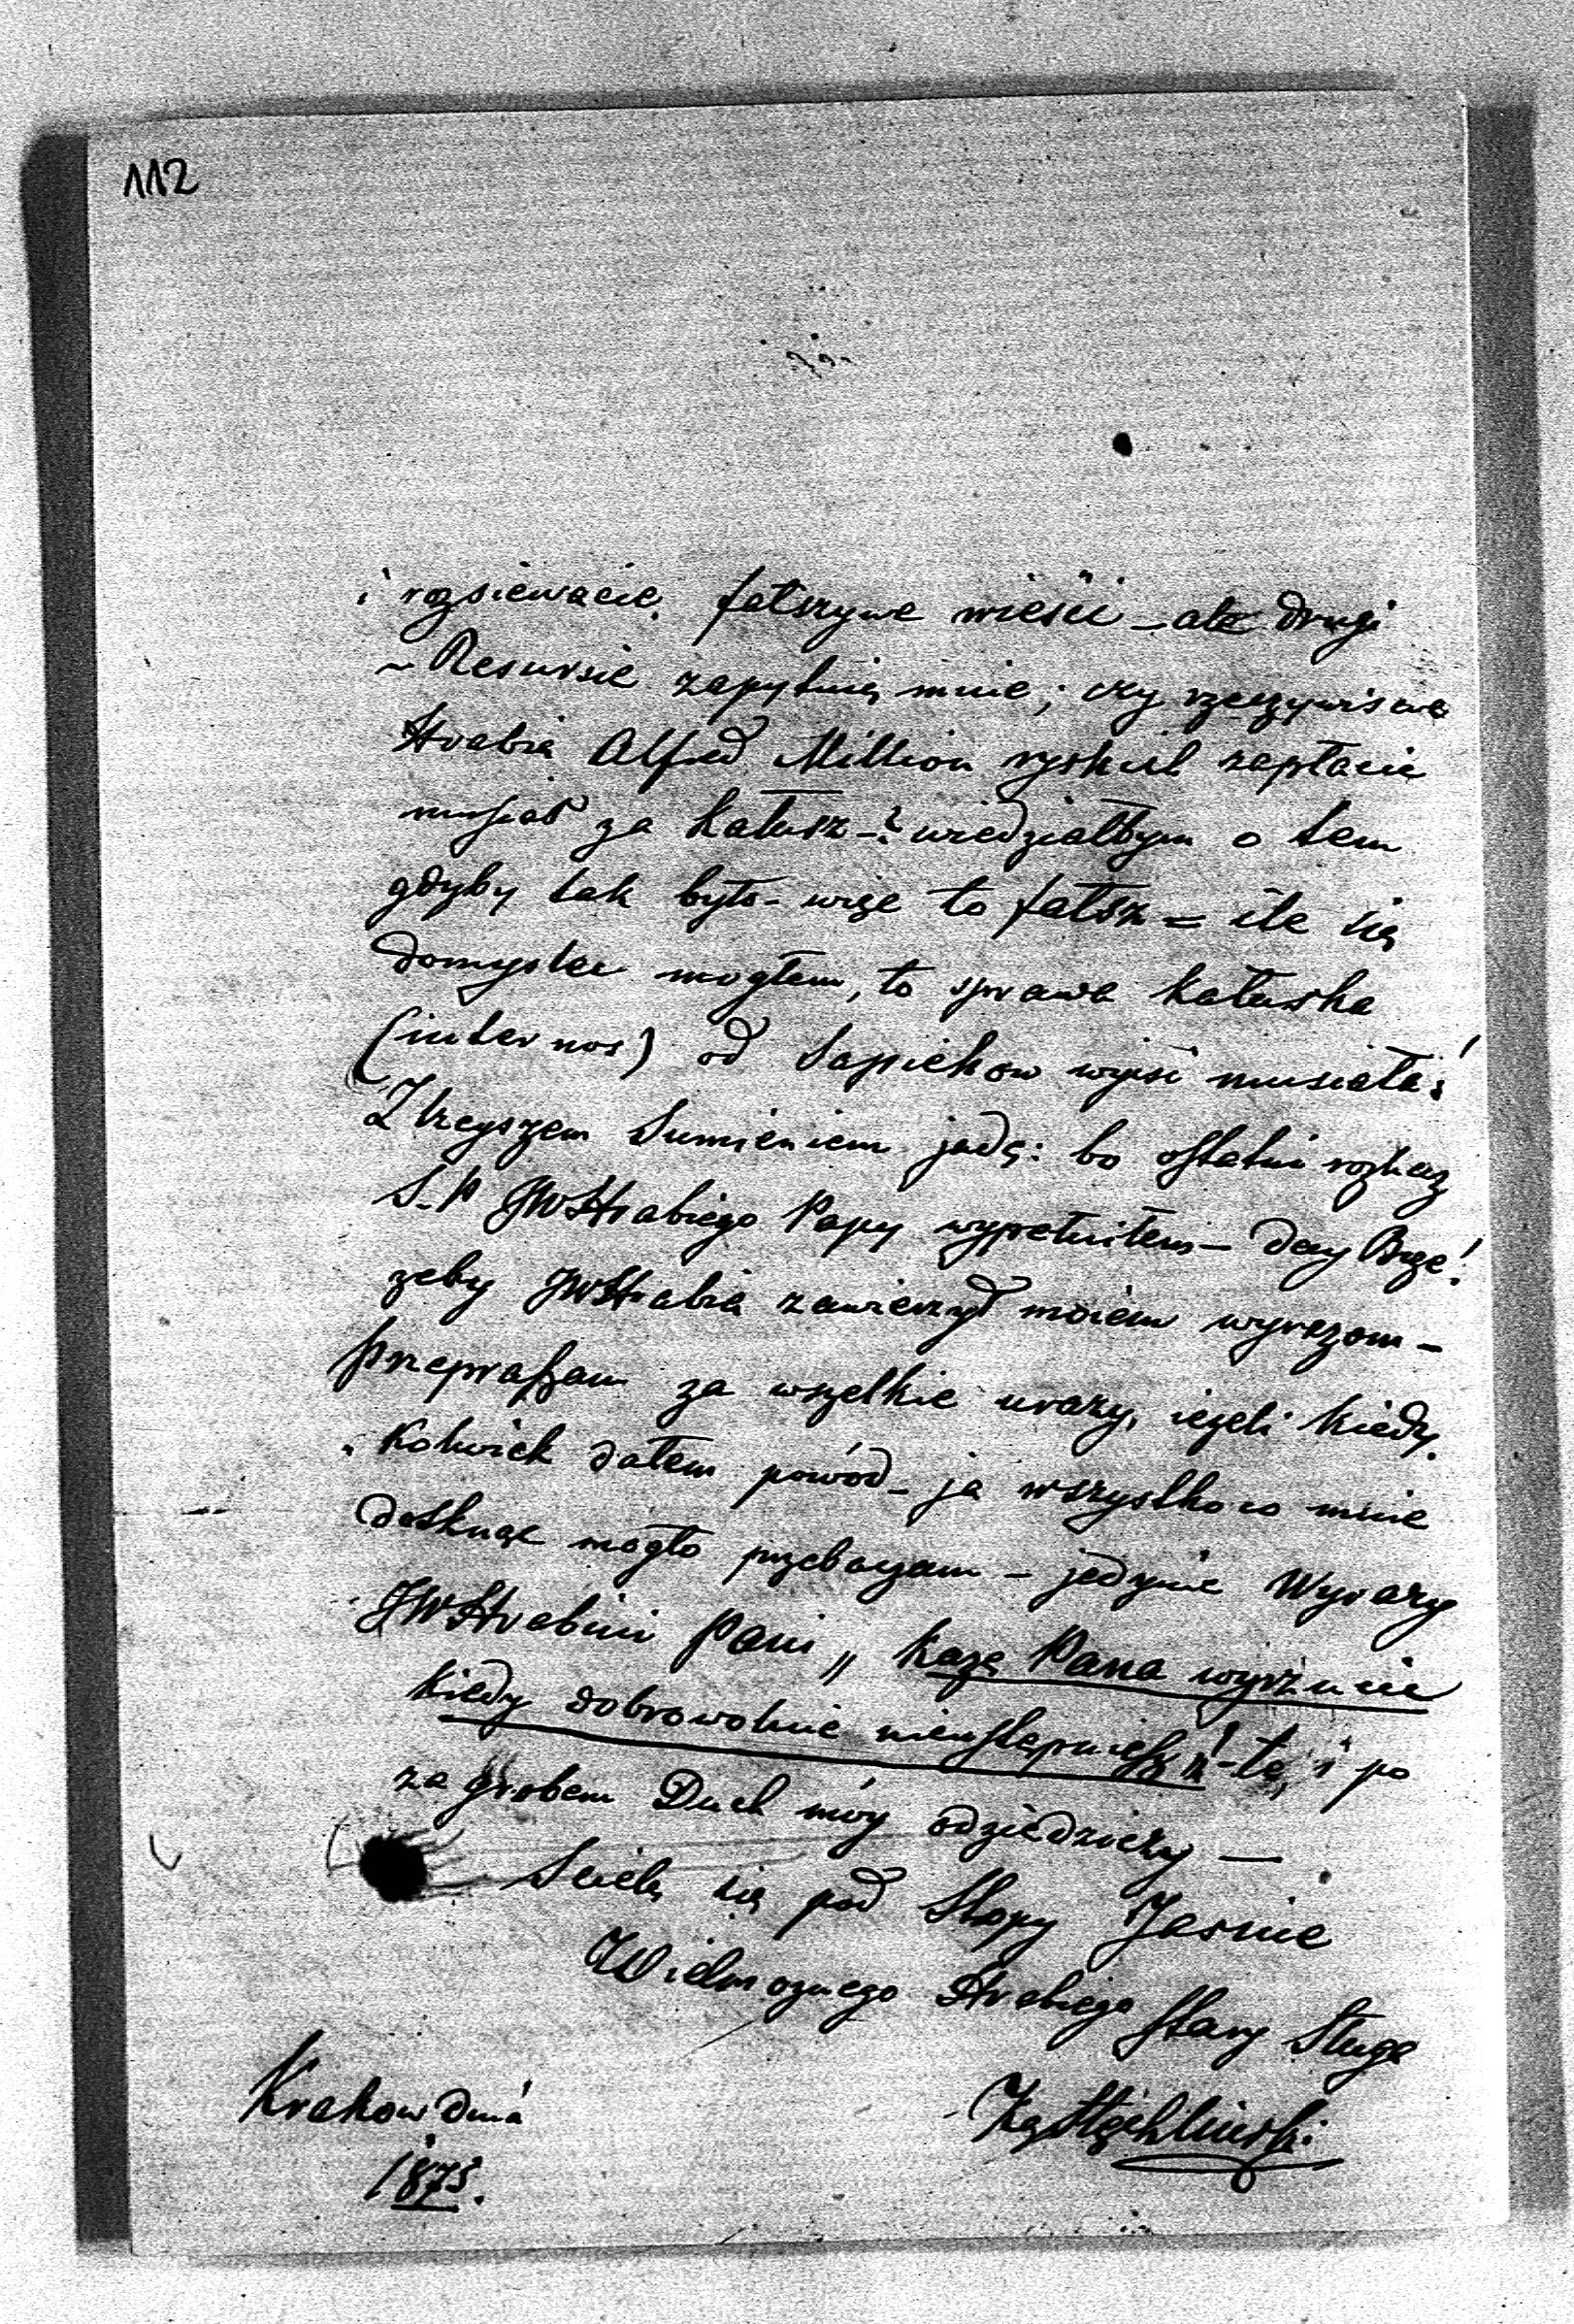 112
i rozsiewacie fałszywe wieści – ale drugi
~ Resursie zapytuią mnie; czy rzeczywiscie
Hrabia Alfred Million ryskich zapłacic
musiał za Kałusz –? wiedziałbym o tem
gdyby tak było – więc to fałsz = ile się
domyslec mogłem, to sprawa Kałuska
(inter nos) od Sapiehow wyisc musiała!
Z trzyszem Sumieniem jadę: bo ostatni rozkaz
S. P JWHrabiego Papy wypełniłem – day Boże!
zeby JWHrabia zawierzył moiem wyrazom –
przepraszam za wszelkie urazy, iezeli kiedy
kolwiek dałem powód – ja wszystko co mnie
dotknąc mogło przebaczam – jedynie Wyrazy
JWHrabini Pani „ każę Pana wyrżucic
kiedy dobrowolnie nieustąpniesz" – te, i po
za grobem Duch móy odziedziczy —
Scielę się pod Stopy Jasnie
Wielmoznego Hrabiego stary Sługa
Krakow dnia
1873.